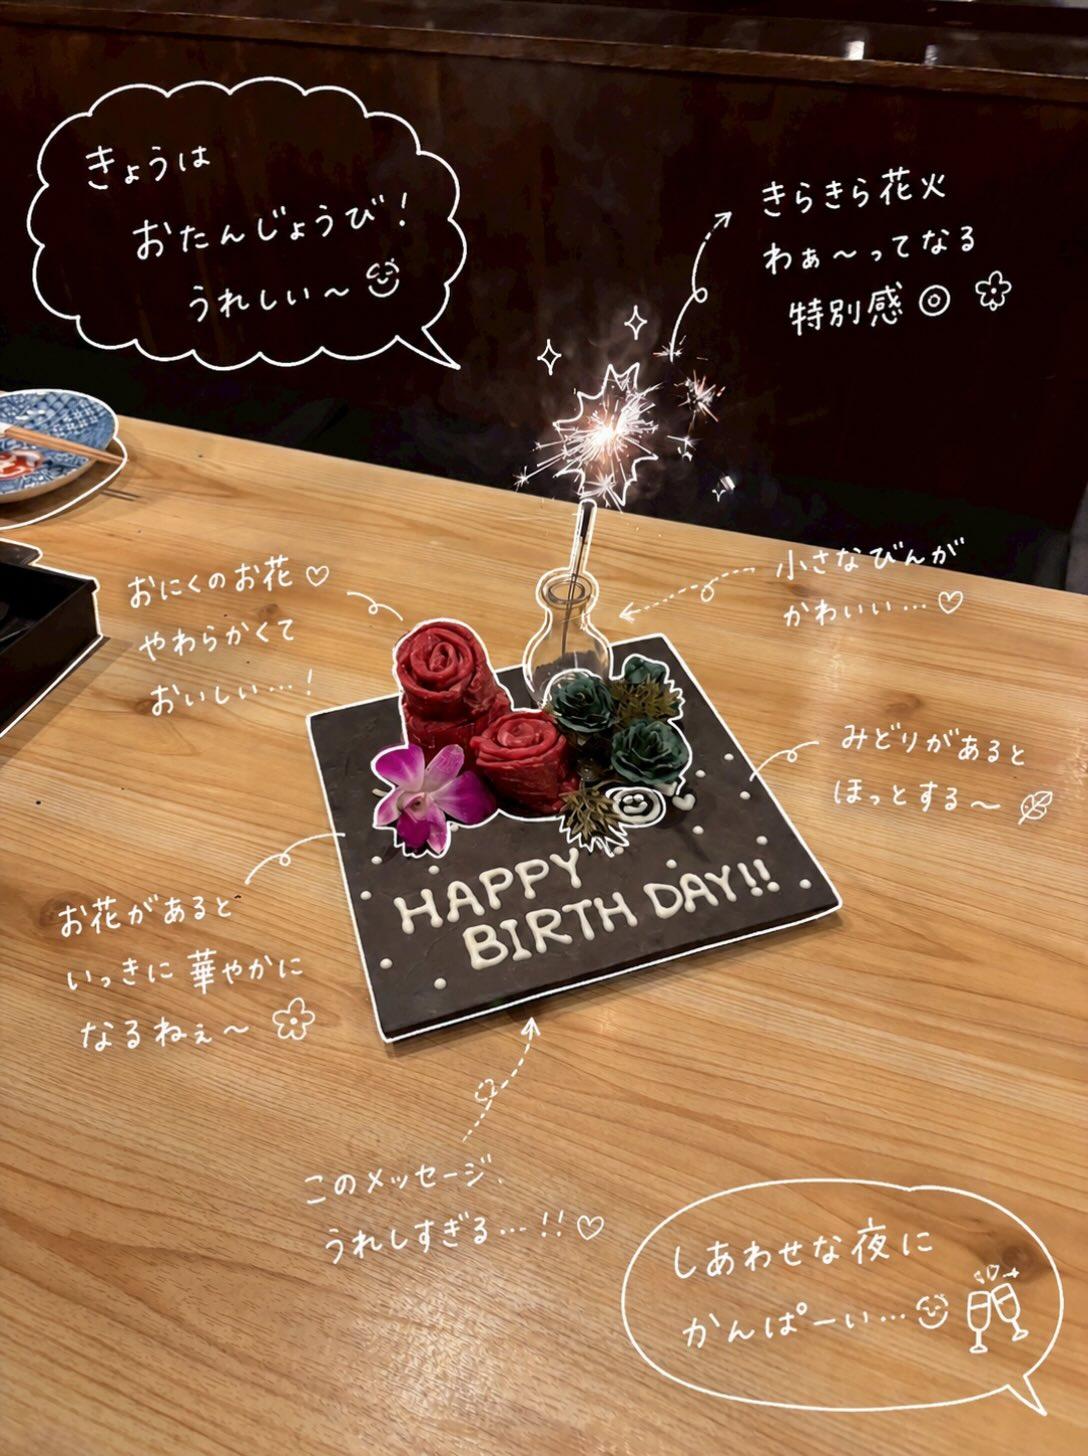 きょうは
おたんじょうび!
うれしい〜
きらきら花火
わぁ〜ってなる
特別感◎
おにくのお花♡
やわらかくて
おいしい…!
小さなびんが
かわいい…♡
みどりがあると
ほっとする〜
HAPPY
BIRTH DAY!!
お花があると
いっきに華やかに
なるねぇ〜
このメッセージ、
うれしすぎる…!!♡
しあわせな夜に
かんぱーい…